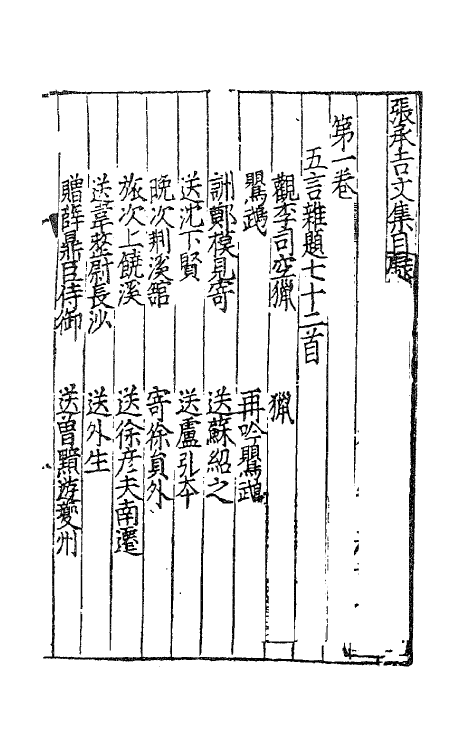 張承吉文集目録
第一卷
五言雜題七十二首
觀李司空獵　獵
鸎鵡　再吟鸎鵡
訓鄭模見寄　送蘇紹之
送沈下賢　送盧弘本
晚次荆溪舘　寄徐員外
旅次上饒溪　送徐彦夫南遷
送韋整尉長沙　送外生
贈薛鼎臣侍御　送曽黯遊夔州